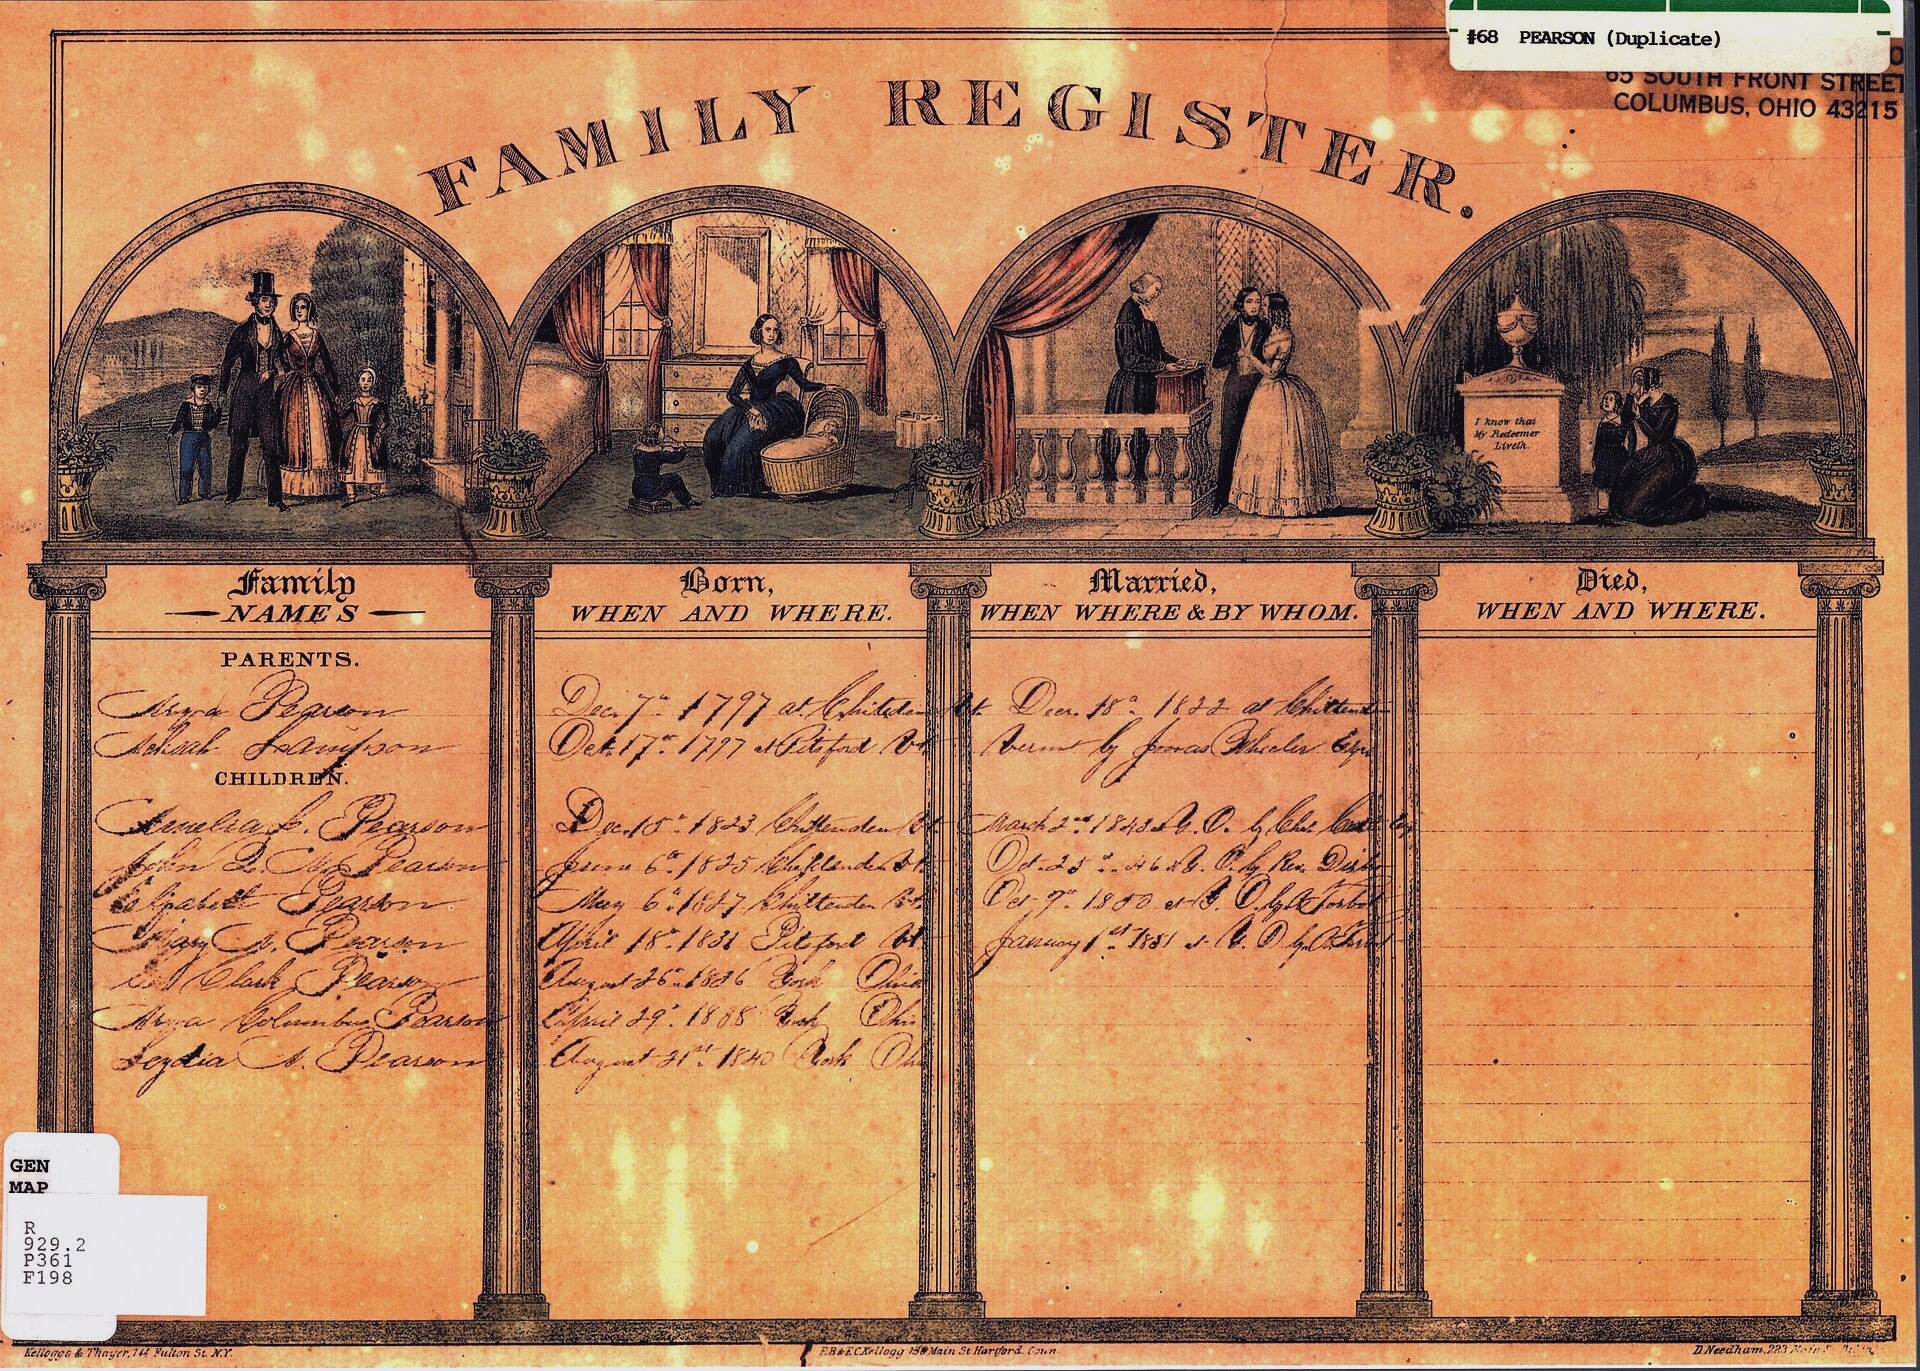 #68 PEARSON (Duplicate)
65 SOUTH FRONT STREET
COLUMBUS, OHIO 43215
FAMILY REGISTER.
I know that
My Redeemer
Liveth.
Family
NAMES
Born,
WHEN AND WHERE.
Married,
WHEN WHERE & BY WHOM.
Died,
WHEN AND WHERE.
PARENTS.
Pearson Dec. 7th 1797 at Chittenden Vt. Decr. 18th 1822 at Chittenden
Sampson Oct. 17th 1797 at Pitsford Vt. Vermt by Jonas Wheeler Esqr
CHILDREN.
Amelia C. Pearson Dec. 15th 1823 Chittenden Vt. March 2nd 1843 at Y. O. by
John Q. A. Pearson June 6th 1825 Chittenden Vt. Oct. 25 46 at Y. O. by Rev.
Elizabeth Pearson May 6th 1827 Chittenden Vt. Oct 9th 1850 at Y. O. by
Mary A. Pearson April 18th 1831 Pitsford Vt. January 1st 1851 at Y. O. by
Clark Pearson August 26th 1836 York Ohio
Columbus Pearson April 29th 1838 York Ohio
Lydia A. Pearson August 21st 1840 York Ohio
GEN
MAP
R
929.2
P361
F198
Kelloggs & Thayer, 144 Fulton St. N.Y.
E.B & E.C. Kellogg 136 Main St Hartford, Conn.
D. Needham, 223 Main St.